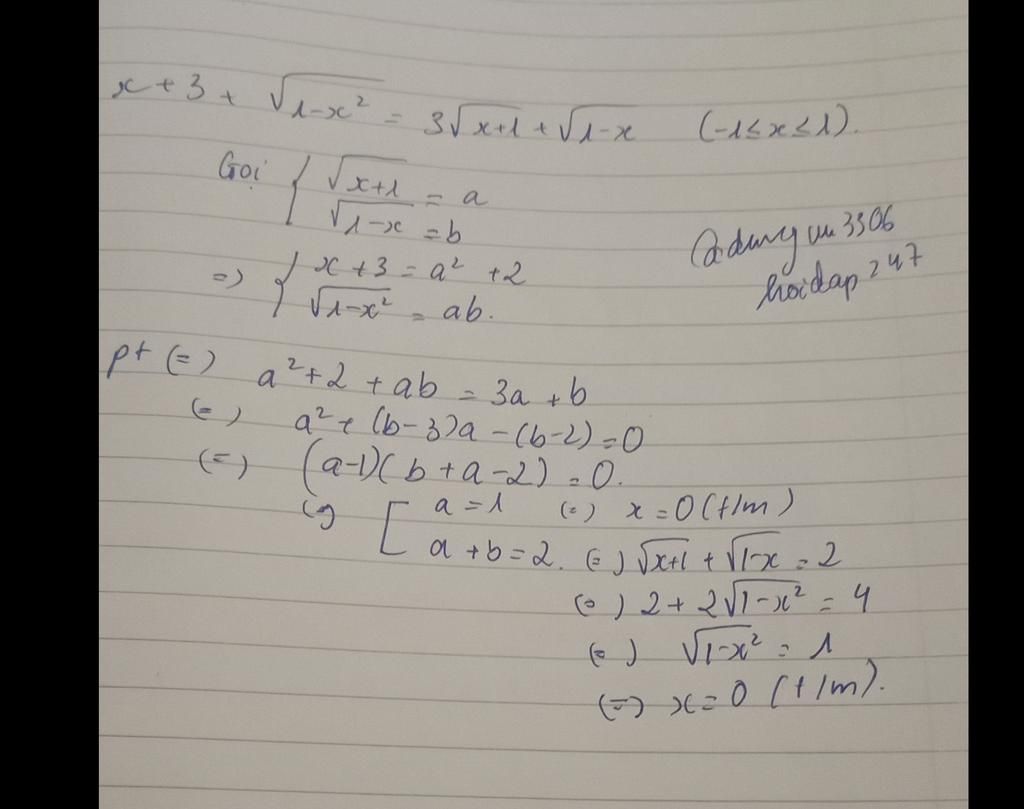 x + 3 + √(1-x²) = 3√(x+1) + √(1-x) (-1 ≤ x ≤ 1).
Gọi { √(x+1) = a
√(1-x) = b
=> { x + 3 = a² + 2
√(1-x²) = ab.
@dungvu3306
hoidap247
pt (=) a² + 2 + ab = 3a + b
(=) a² + (b-3)a - (b-2) = 0
(=) (a-1)(b+a-2) = 0.
(=) [ a = 1 (=) x = 0 (t/m)
a + b = 2. (=) √(x+1) + √(1-x) = 2
(=) 2 + 2√(1-x²) = 4
(=) √(1-x²) = 1
(=) x = 0 (t/m).